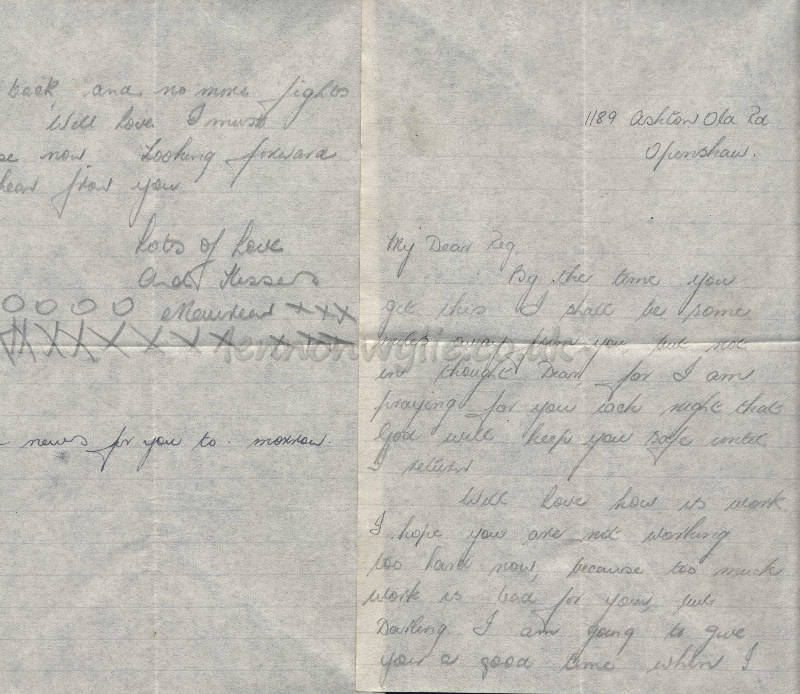 back, and no more fights
Well love I must
se now Looking forward
hear from you
Lots of Love
And Kisses
O O O O Maureen X X X
X X X X X X X X X X X
news for you to. morrow.
1189 Ashton Old Rd
Openshaw.
My Dear Reg
By the time you
get this I shall be some
miles away from you, but not
in thought Dear, for I am
praying for you each night that
God will keep you safe until
I return
Well love how is work
I hope you are not working
too hard now, because too much
work is bad for you, but
Darling I am going to give
you a good time when I
lennonwylie.co.uk